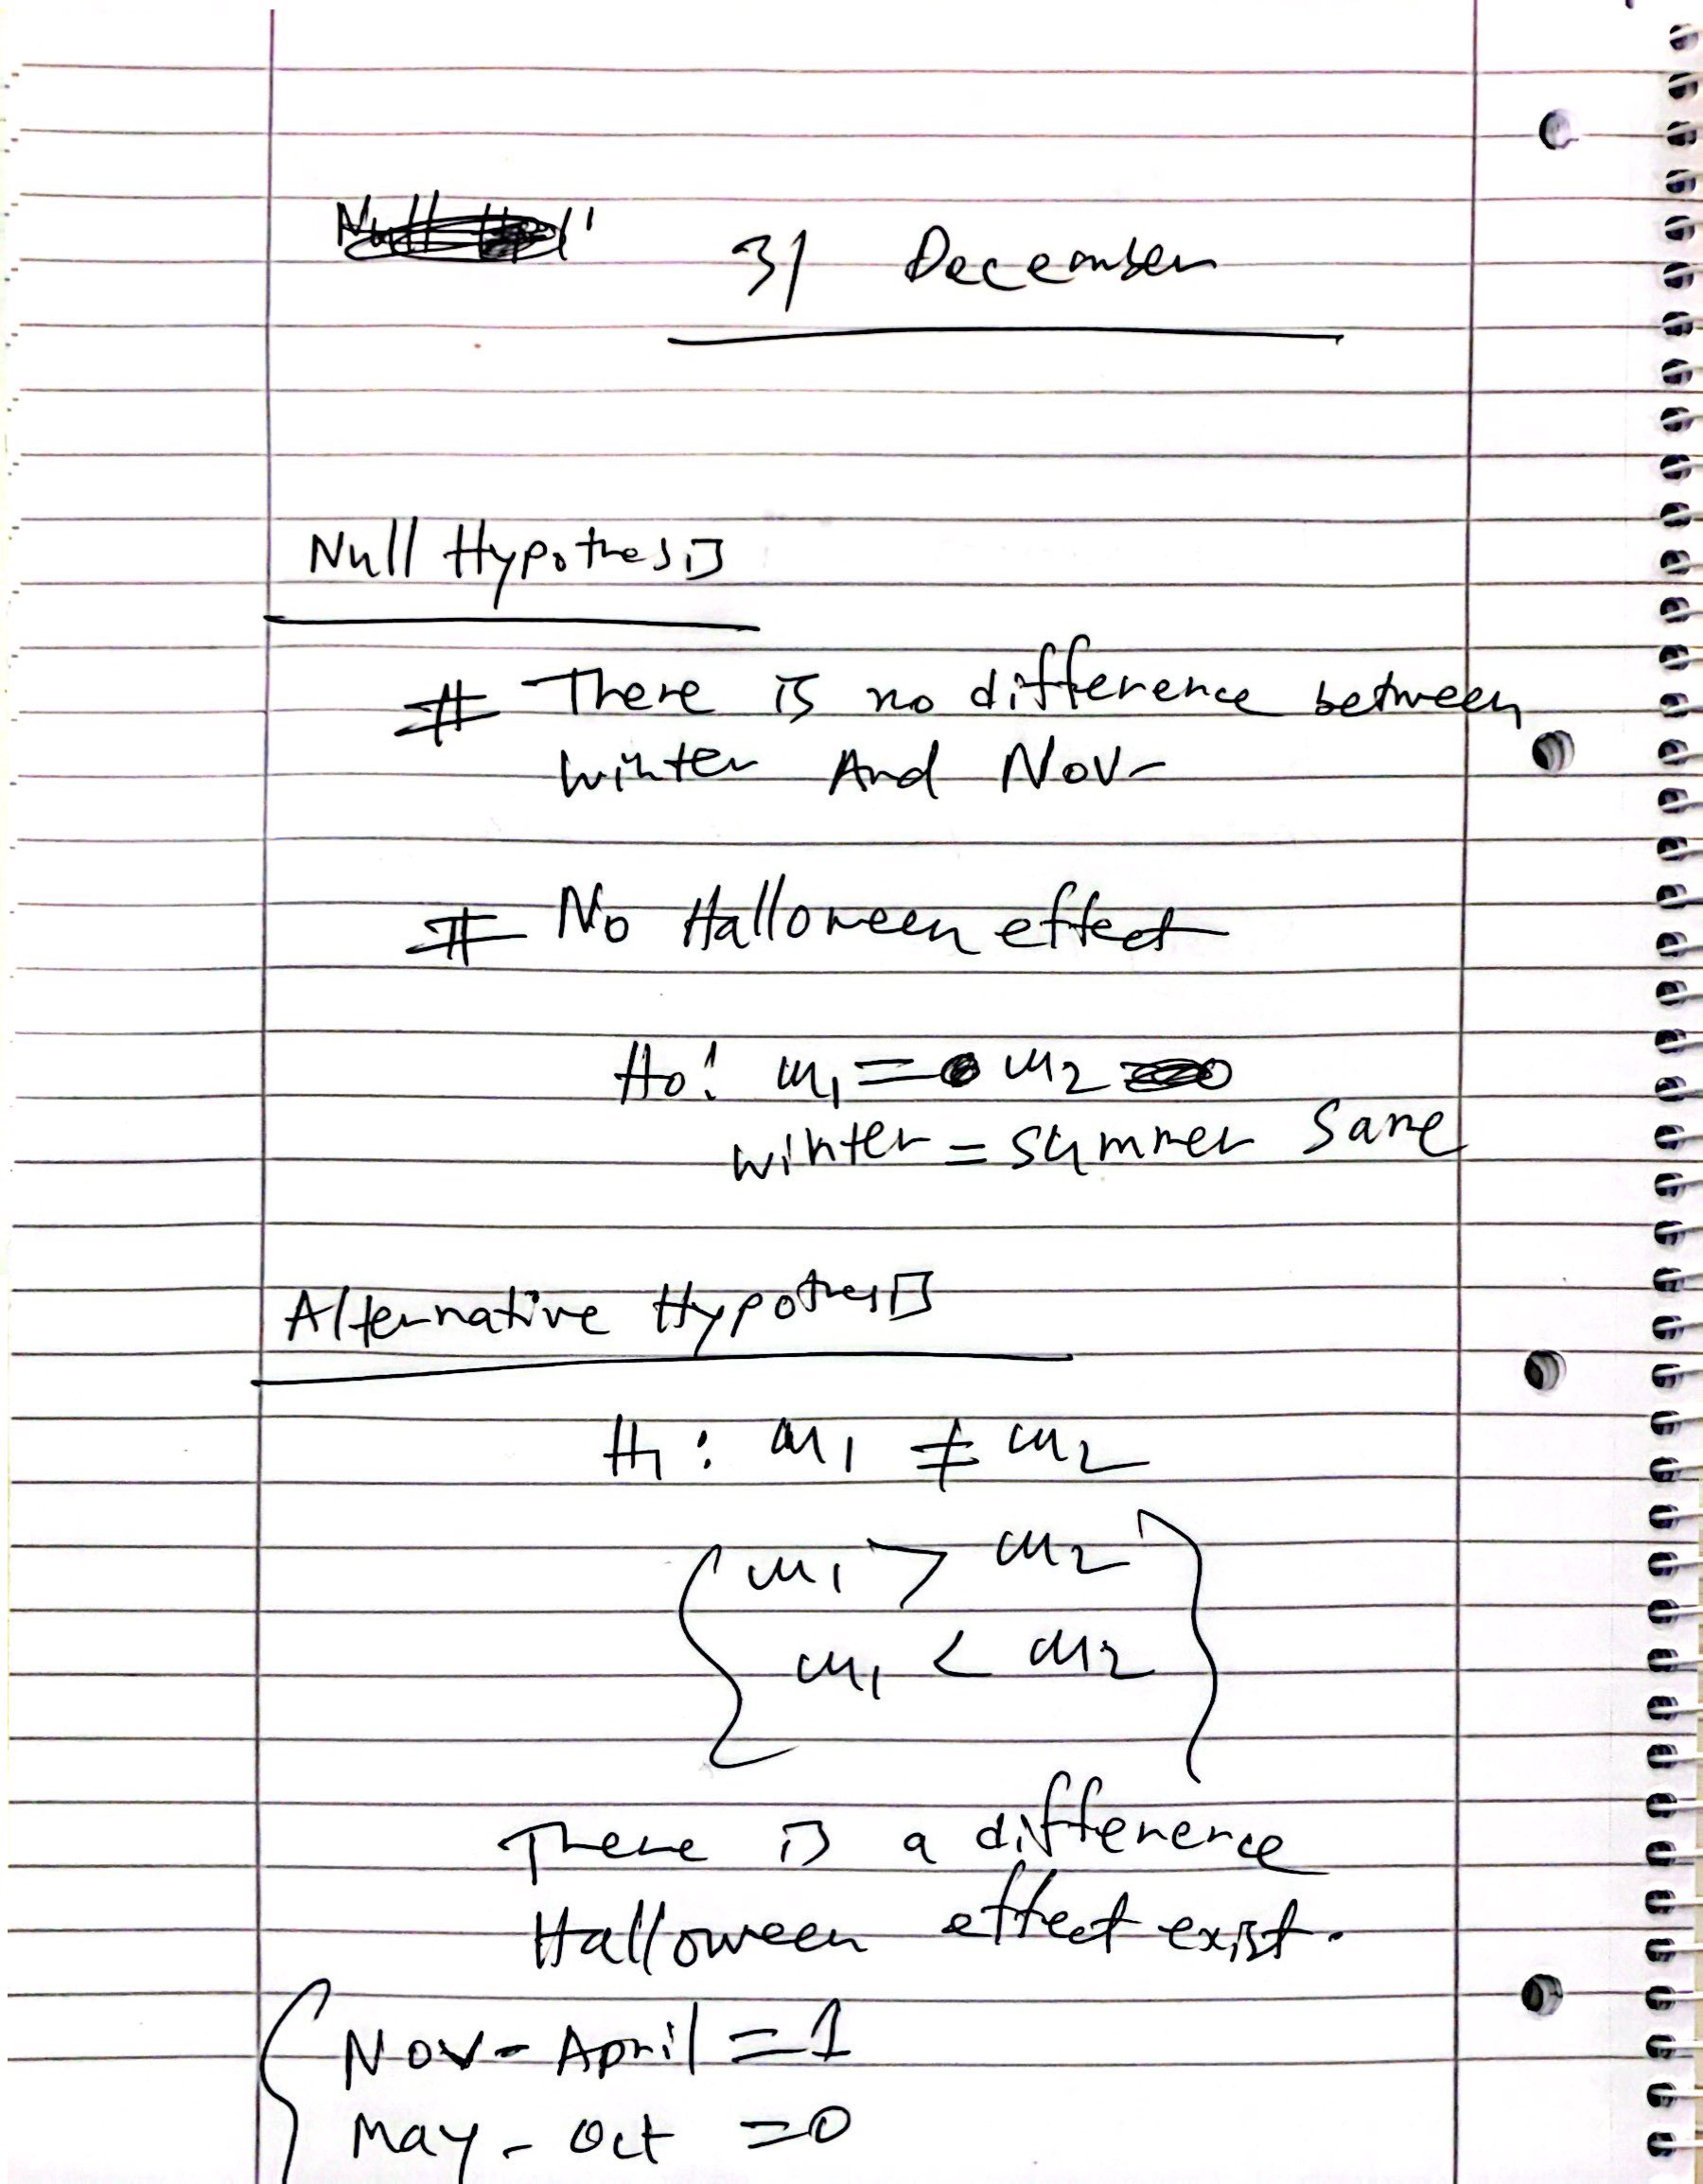 31 December
Null Hypothesis
# There is no difference between
winter And Nov-
# No Halloween effect
H0: μ1 = μ2
winter = summer same
Alternative Hypothesis
H1: μ1 ≠ μ2
μ1 > μ2
μ1 < μ2
There is a difference
Halloween effect exist.
Nov - April = 1
May - Oct = 0